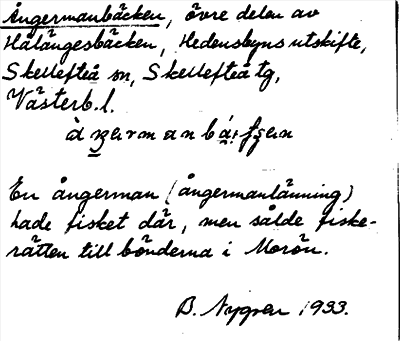 Ångermanbäcken, övre delen av
Hålängesbäcken, Hedensbyns utskifte,
Skellefteå sn, Skellefteå tg,
Västerb. l.
En ångerman (ångermanlänning)
hade fisket där, men sålde fiske-
rätten till bönderna i Morön.
B. Nygren 1933.